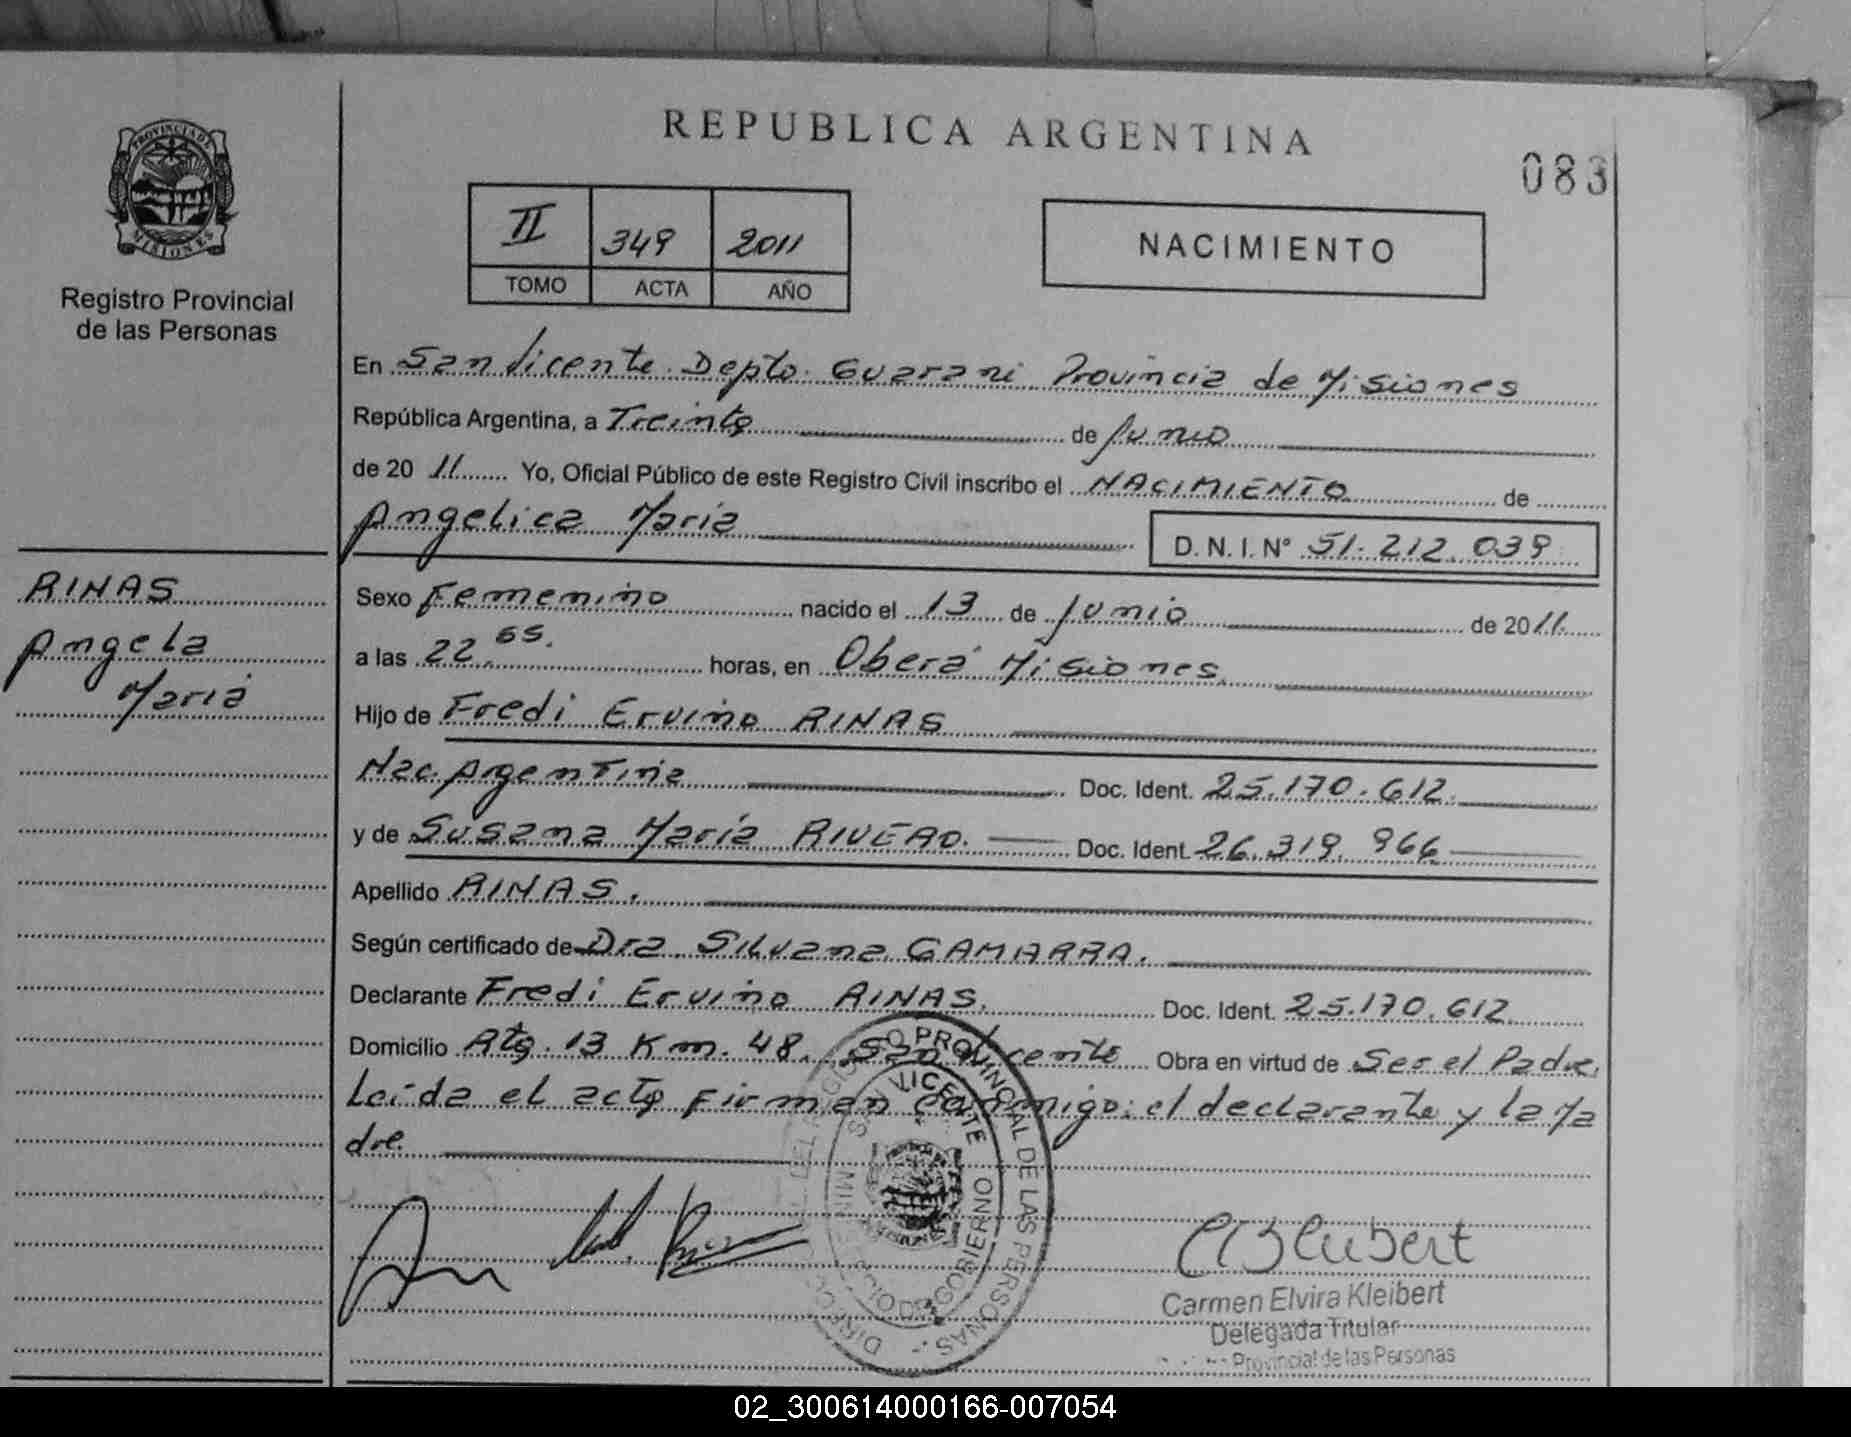 REPUBLICA ARGENTINA
083
PROVINCIA DE
MISIONES
Registro Provincial
de las Personas
II 349 2011
TOMO ACTA AÑO
NACIMIENTO
En San Vicente Depto. Guarani Provincia de Misiones
República Argentina, a Treinta de Junio
de 20 11 Yo, Oficial Público de este Registro Civil inscribo el NACIMIENTO de
Angelica Maria D. N. I. N° 51.212.039
RINAS
Angela
Maria
Sexo Femenino nacido el 13 de Junio de 2011
a las 22 horas, en Oberá Misiones
Hijo de Fredi Ervino RINAS
Nac. Argentina Doc. Ident. 25.170.612
y de Susana María RIVERO. Doc. Ident. 26.319.966
Apellido RINAS.
Según certificado de Dra. Silvana GAMARRA.
Declarante Fredi Ervino RINAS. Doc. Ident. 25.170.612
Domicilio Rta. 13 Km. 48. San Vicente Obra en virtud de Ser el Padre.
Leida el acta firman conmigo: el declarante y la Ma
dre.
PROVINCIAL DE LAS PERSONAS
VICENTE
GOBIERNO
Carmen Elvira Kleibert
Delegada Titular
Provincial de las Personas
02_300614000166-007054